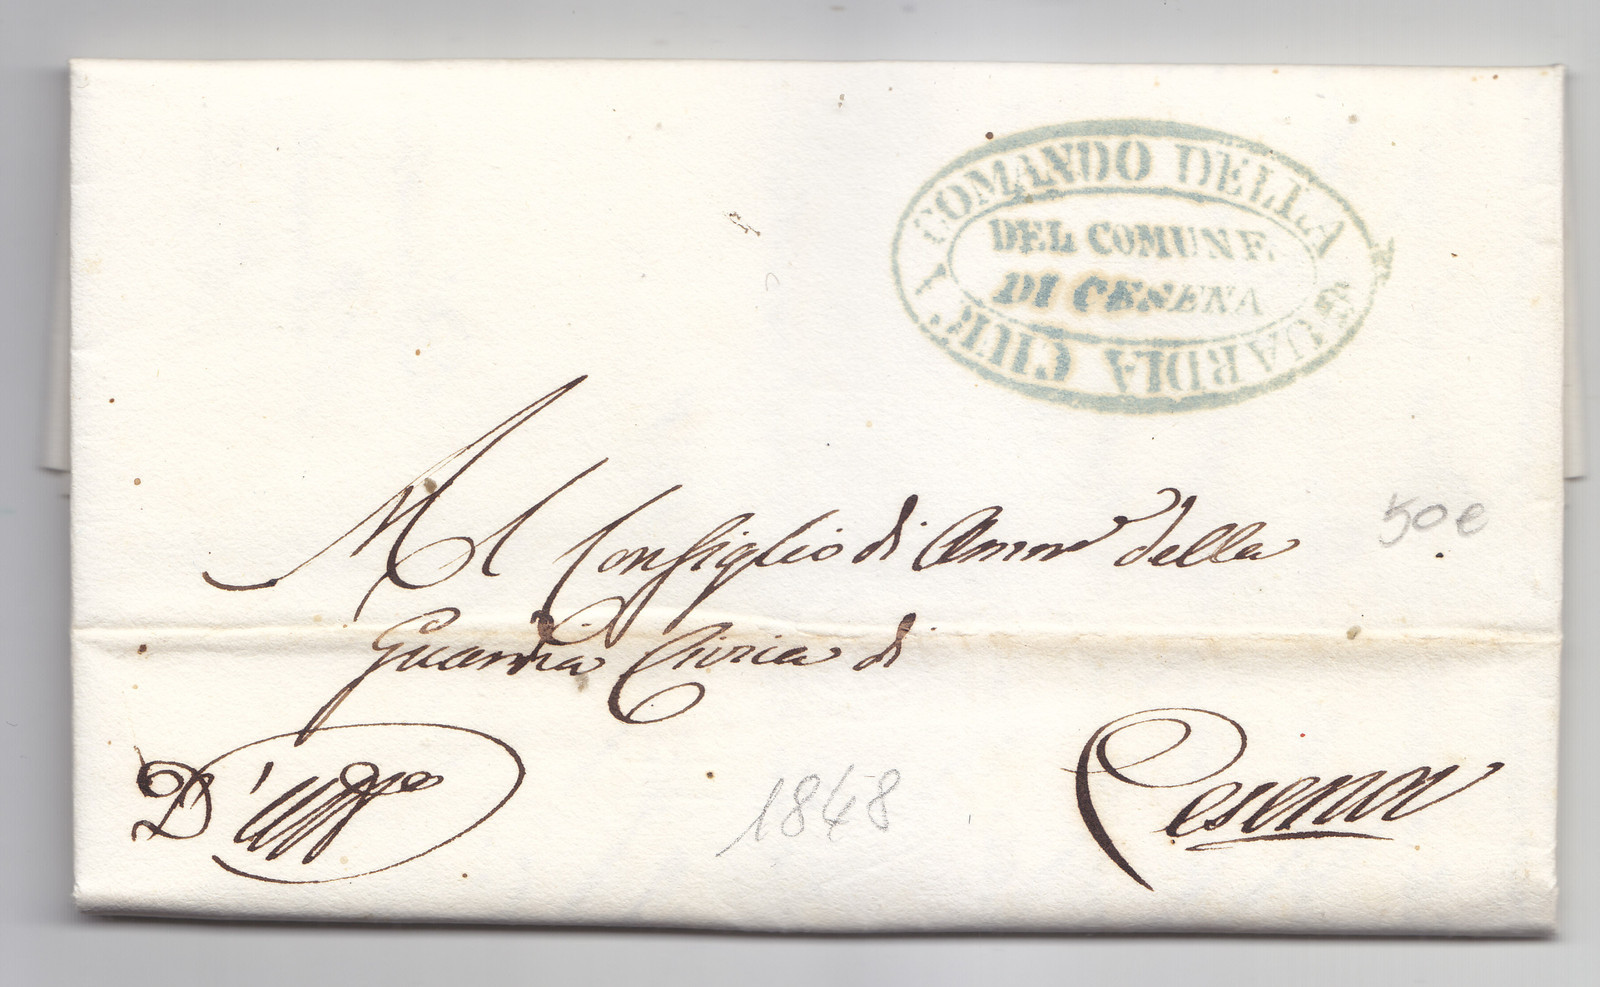 COMANDO DELLA GUARDIA CIVICA
DEL COMUNE
DI CESENA
Al Consiglio di Amm.e della
50 e
Guardia Civica di
D'Uffo
1848
Cesena